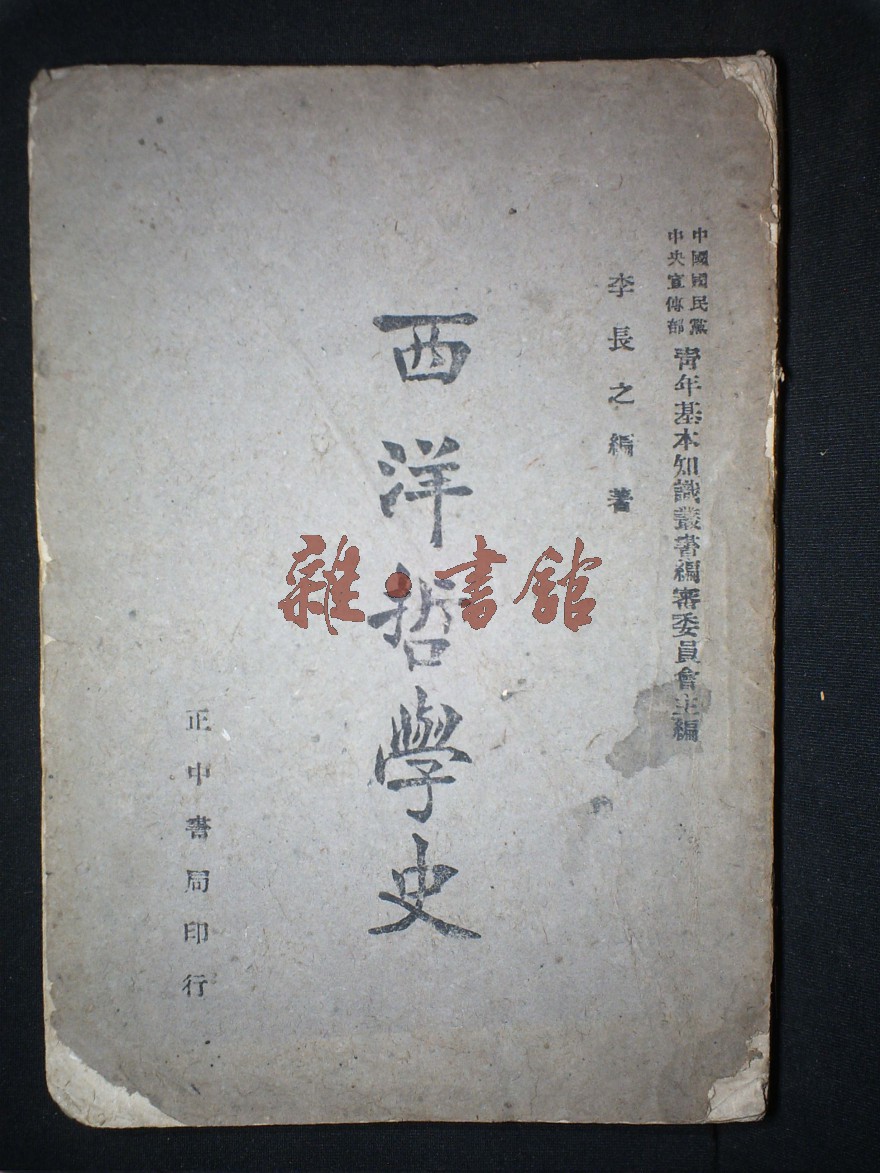 中國國民黨
中央宣傳部
青年基本知識叢書編審委員會主編
李長之編著
西洋哲學史
正中書局印行
雜·書館